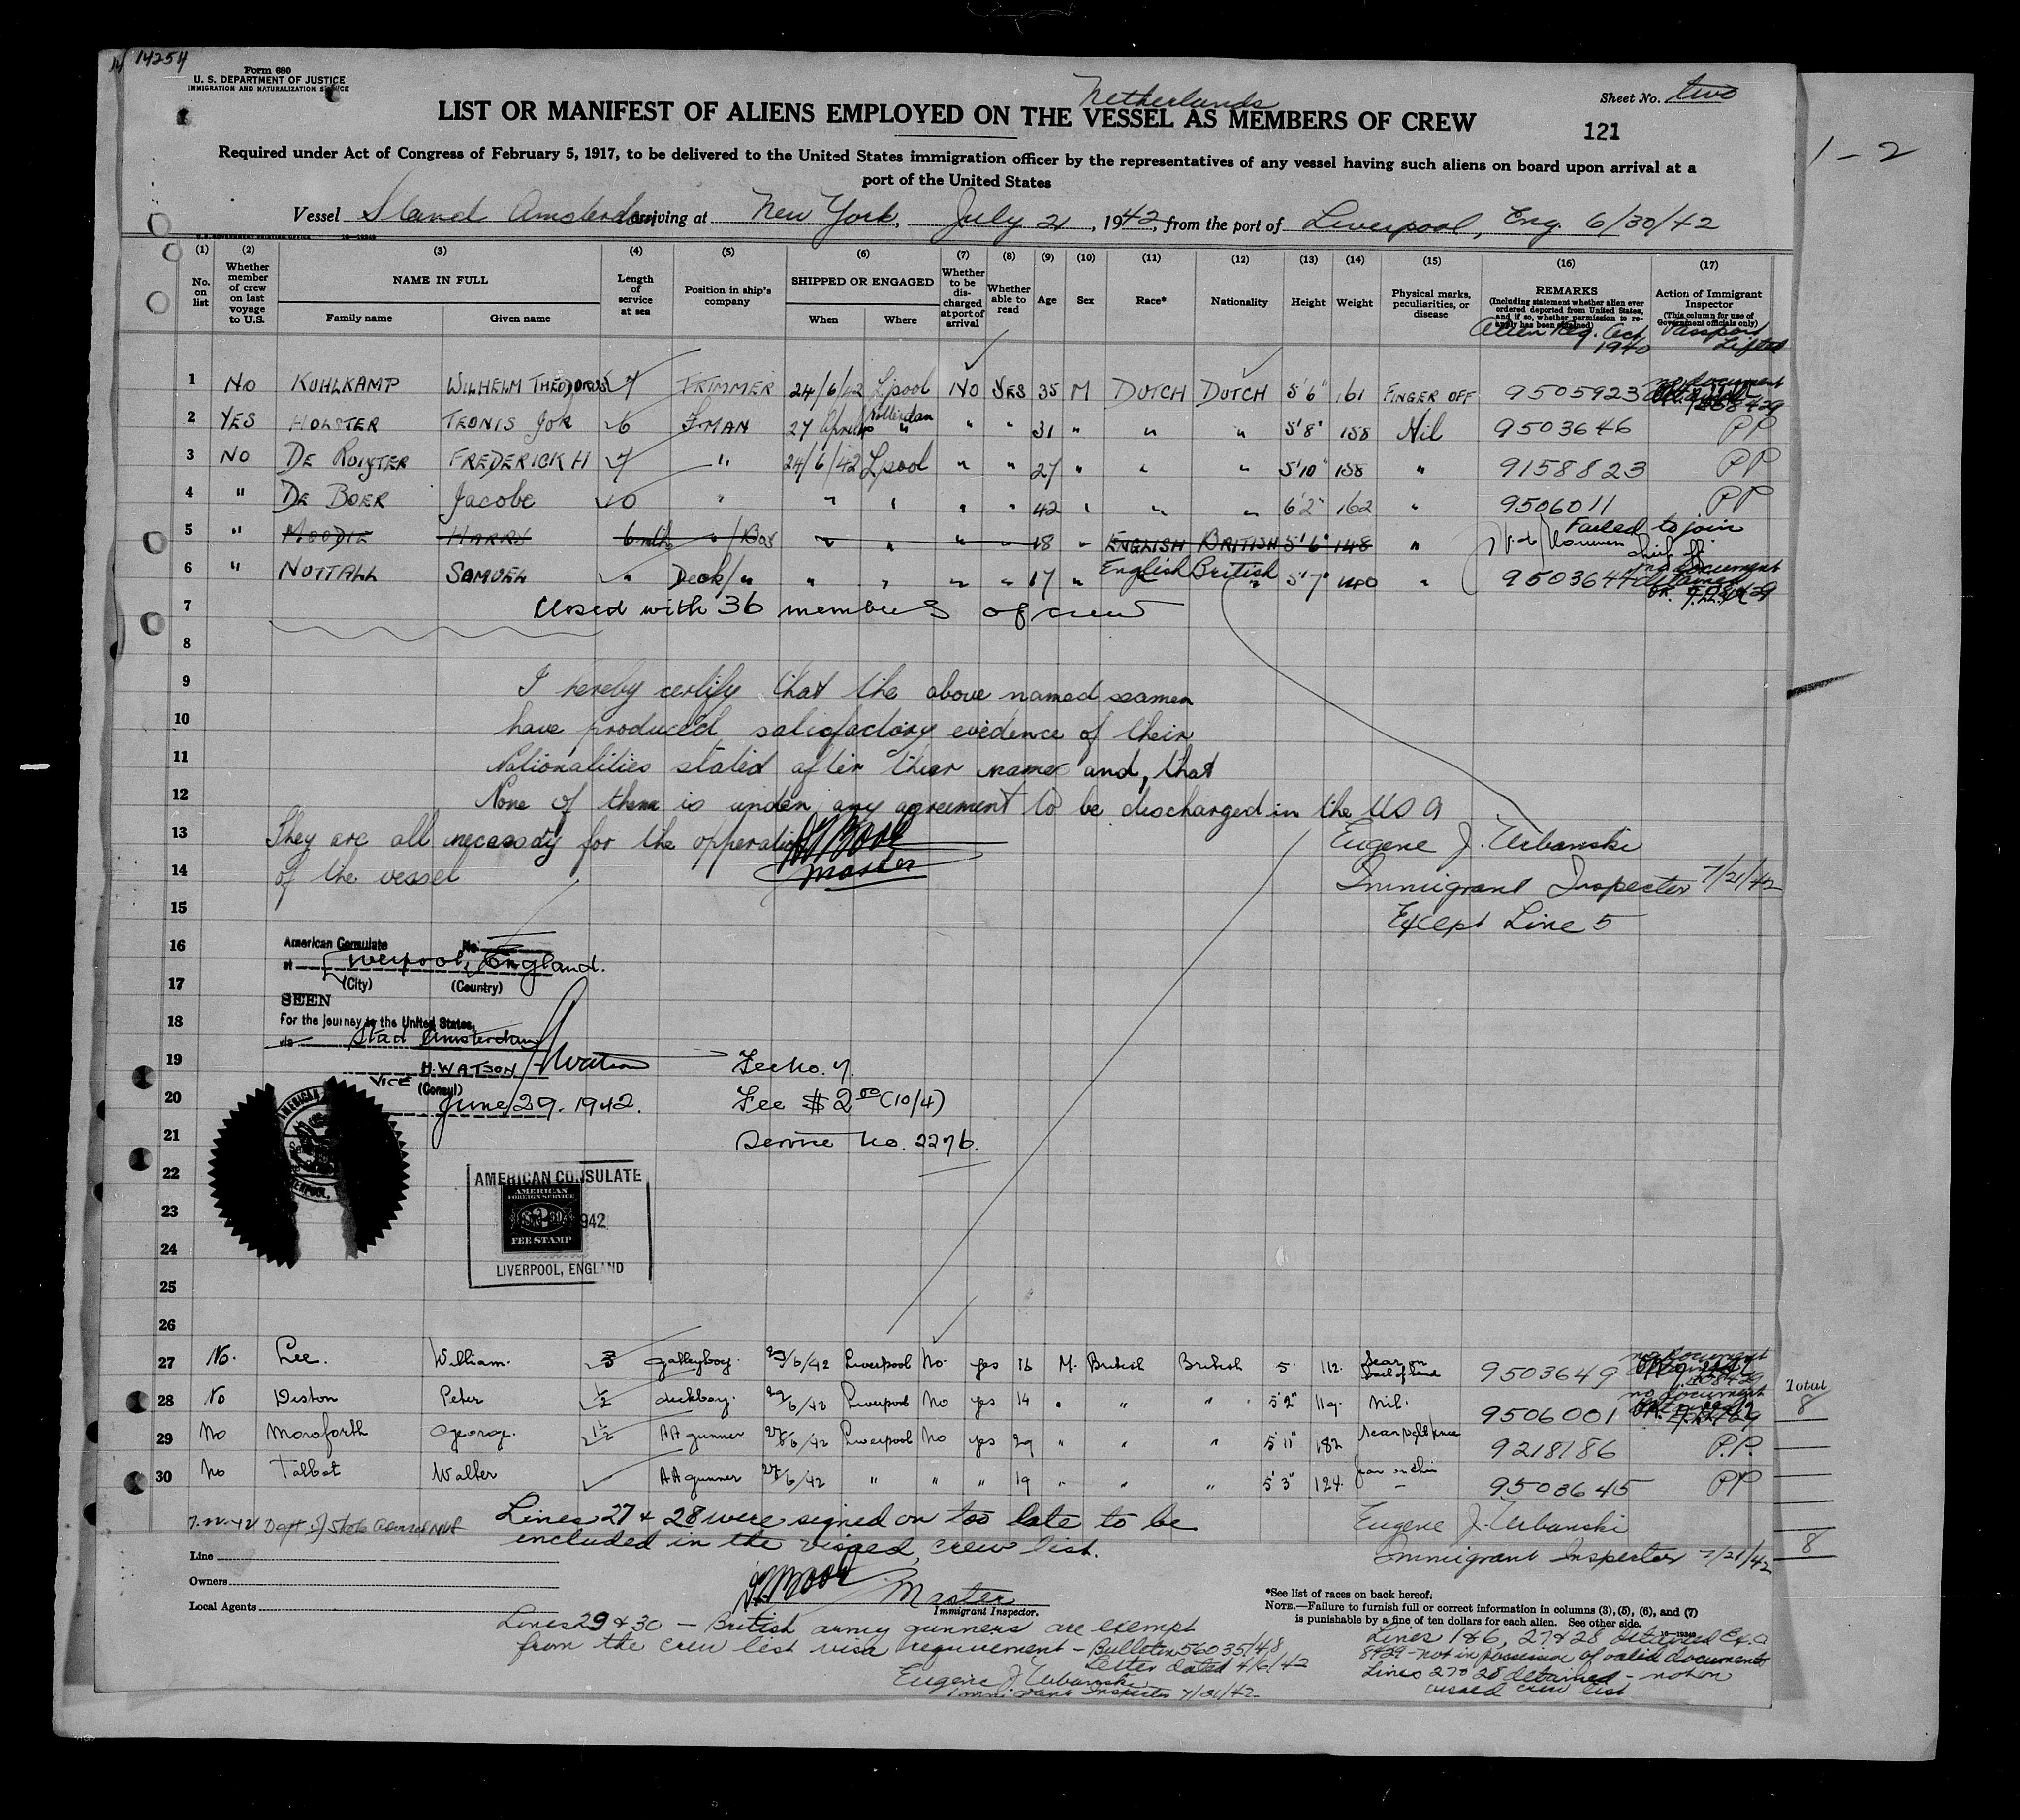 14254
Form 680
U. S. DEPARTMENT OF JUSTICE
IMMIGRATION AND NATURALIZATION SERVICE
Sheet No. two
Netherlands
LIST OR MANIFEST OF ALIENS EMPLOYED ON THE VESSEL AS MEMBERS OF CREW
121
1-2
Required under Act of Congress of February 5, 1917, to be delivered to the United States immigration officer by the representatives of any vessel having such aliens on board upon arrival at a
port of the United States
Vessel Stand Amsterdam arriving at New York, July 21, 1942, from the port of Liverpool, Eng. 6/30/42
(1) (2) (3) (4) (5) (6) (7) (8) (9) (10) (11) (12) (13) (14) (15) (16) (17)
No. on list
Whether member of crew on last voyage to U.S.
NAME IN FULL
Family name
Given name
Length of service at sea
Position in ship's company
SHIPPED OR ENGAGED
When
Where
Whether to be discharged at port of arrival
Whether able to read
Age
Sex
Race*
Nationality
Height
Weight
Physical marks, peculiarities, or disease
REMARKS
(Including statement whether alien ever ordered deported from United States, and if so, whether permission to reapply has been obtained)
Alien Reg. Act 1940
Action of Immigrant Inspector
(This column for use of Government officials only)
Passport Lifted
1 No KOHLKAMP WILHELM THEODORUS 7 TRIMMER 24/6/42 Lpool NO YES 35 M DUTCH DUTCH 5'6" 161 FINGER OFF 9505923 no document
2 YES HOLSTER TEONIS JOR 6 F.MAN 27 April Rotterdam " " 31 " " " 5'8" 158 Nil 9503646 PP
3 NO DE RUIJTER FREDERICK H 7 " 24/6/42 Lpool " " 27 " " " 5'10" 158 " 9158823 PP
4 " DE BOER Jacobe 10 " " " " " 42 " " " 6'2" 162 " 9506011 PP
5 " MOODIE HARRY 6 mths " /Boy " " " " 18 " ENGLISH BRITISH 5'6" 148 " Failed to join
6 " NOTTALL SAMUEL " Deck/" " " " " 17 " English British 5'7" 140 " 9503644 no document detained
7 Closed with 36 members of crew
8
9 I hereby certify that the above named seamen
10 have produced satisfactory evidence of their
11 Nationalities stated after thier names and, that
12 None of them is under any agreement to be discharged in the U S A
13 They are all necessary for the opperation
14 of the vessel
Master
Eugene J. Urbanski
Immigrant Inspector 7/21/42
Except Line 5
15
16 American Consulate No.
at Liverpool, England.
17 (City) (Country)
SEEN
18 For the journey to the United States,
via Stad Amsterdam
19 H. WATSON Watson
VICE (Consul)
Fee No. 7.
20 June 29. 1942.
Fee $ 2.00 (10/4)
21 Service No. 2276.
22 AMERICAN CONSULATE
AMERICAN
FOREIGN SERVICE
23 1942
FEE STAMP
24 LIVERPOOL, ENGLAND
25
26
27 No. Lee. William. galleyboy. 29/6/42 Liverpool No. yes 16 M. British British 5 112. Scar on back of hand 9503649 no document
28 No Diston Peter 1/2 deckboy. 29/6/42 Liverpool No yes 14 " " " 5'2" 119. nil. 9506001 no document
Total 8
29 No Moroforth George. 1 1/2 AA gunner 27/6/42 Liverpool No yes 29 " " " 5'11" 182 9218186 P.P.
30 No Talbot Walter AA gunner 27/6/42 " " " 19 " " " 5'3" 124. 9503645 PP
8
Lines 27 & 28 were signed on too late to be
included in the visaed crew list.
Eugene J. Urbanski
Immigrant Inspector 7/21/42
Line
Owners
Local Agents
Master
Immigrant Inspector.
*See list of races on back hereof.
NOTE.—Failure to furnish full or correct information in columns (3), (5), (6), and (7)
is punishable by a fine of ten dollars for each alien. See other side.
Lines 29 & 30 — British army gunners are exempt
from the crew list visa requirement — Bulletin 56035/48
Letter dated 4/6/42
Eugene J. Urbanski
Immigrant Inspector 7/21/42
Lines 1&6, 27&28 detained
8429 - not in possession of valid documents
Lines 27&28 detained - not on
visaed crew list